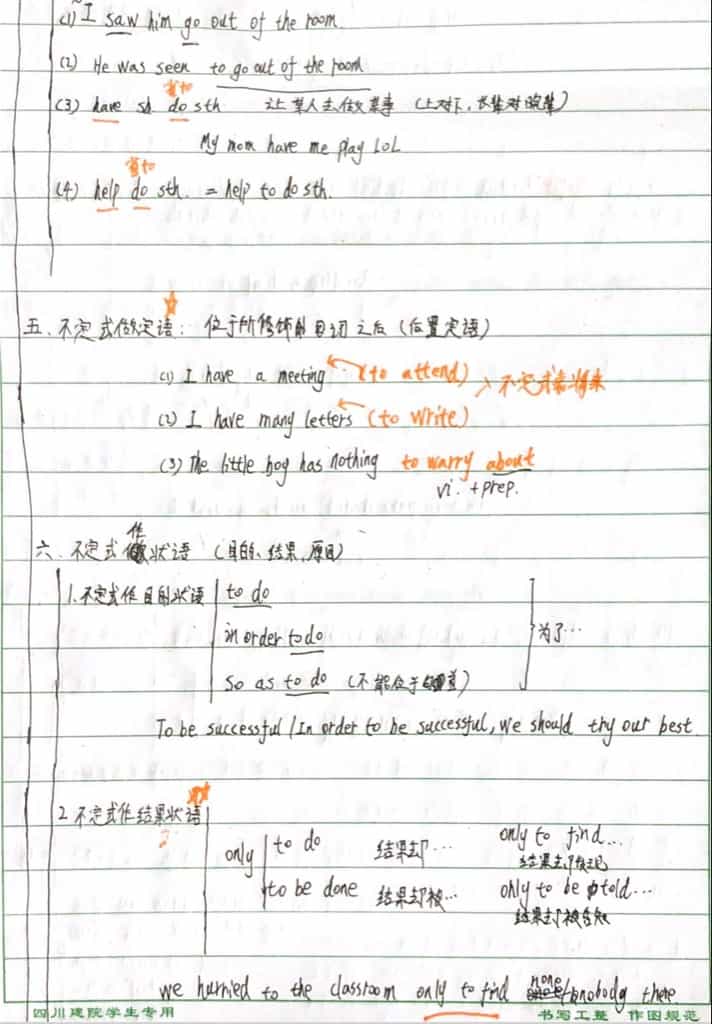 (1) I saw him go out of the room.
(2) He was seen to go out of the room
省to
(3) have sb do sth 让某人去做某事 (上对下、长辈对晚辈)
My mom have me play LOL
省to
(4) help do sth. = help to do sth.
五、不定式做定语: 位于所修饰的名词之后 (后置定语)
(1) I have a meeting (to attend) 不定式表将来
(2) I have many letters (to write)
(3) The little boy has nothing to warry about
vi. + prep.
六、不定式作状语 (目的、结果、原因)
1.不定式作目的状语 to do
in order to do 为了…
so as to do (不能位于句首)
To be successful / In order to be successful, we should try our best.
2 不定式作结果状语
?
only to do 结果却… only to find…
结果却发现
to be done 结果却被… only to be told…
结果却被告知
we hurried to the classroom only to find none / nobody there
四川建院学生专用 书写工整 作图规范